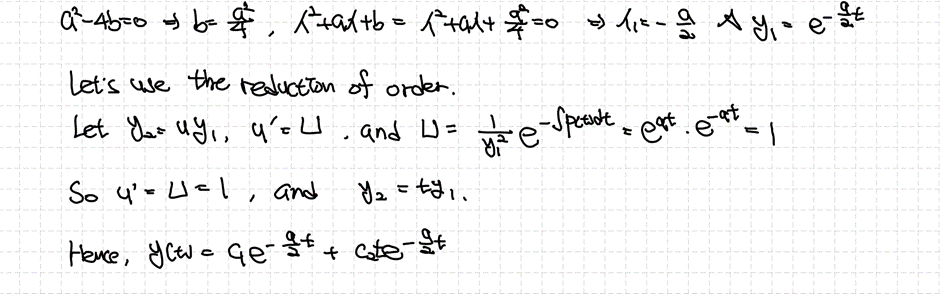 a²-4b=0 ⇒ b= a²/4 , λ²+aλ+b = λ²+aλ+ a²/4 =0 ⇒ λ₁= - a/2 ⇒ y₁ = e^(-a/2 t)
Let's use the reduction of order.
Let y₂= uy₁, u'= U . and U = 1/y₁² e^(-∫p(t)dt) = e^(at) · e^(-at) = 1
So u' = U = 1 , and y₂ = ty₁.
Hence, y(t) = c₁e^(-a/2 t) + c₂te^(-a/2 t)